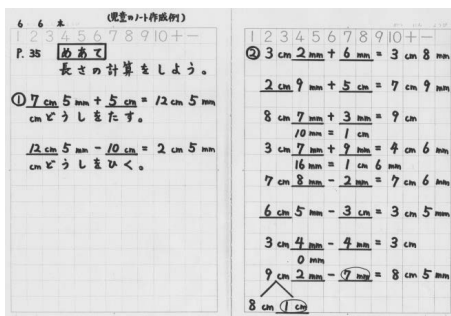 (児童のノート作成例)
6 6 木
1 2 3 4 5 6 7 8 9 10 + −
P. 35 めあて
長さの計算をしよう。
① 7 cm 5 mm + 5 cm = 12 cm 5 mm
cm どうしをたす。
12 cm 5 mm − 10 cm = 2 cm 5 mm
cm どうしをひく。
1 2 3 4 5 6 7 8 9 10 + −
② 3 cm 2 mm + 6 mm = 3 cm 8 mm
2 cm 9 mm + 5 cm = 7 cm 9 mm
8 cm 7 mm + 3 mm = 9 cm
10 mm = 1 cm
3 cm 7 mm + 9 mm = 4 cm 6 mm
16 mm = 1 cm 6 mm
7 cm 8 mm − 2 mm = 7 cm 6 mm
6 cm 5 mm − 3 cm = 3 cm 5 mm
3 cm 4 mm − 4 mm = 3 cm
0 mm
9 cm 2 mm − 7 mm = 8 cm 5 mm
8 cm 1 cm